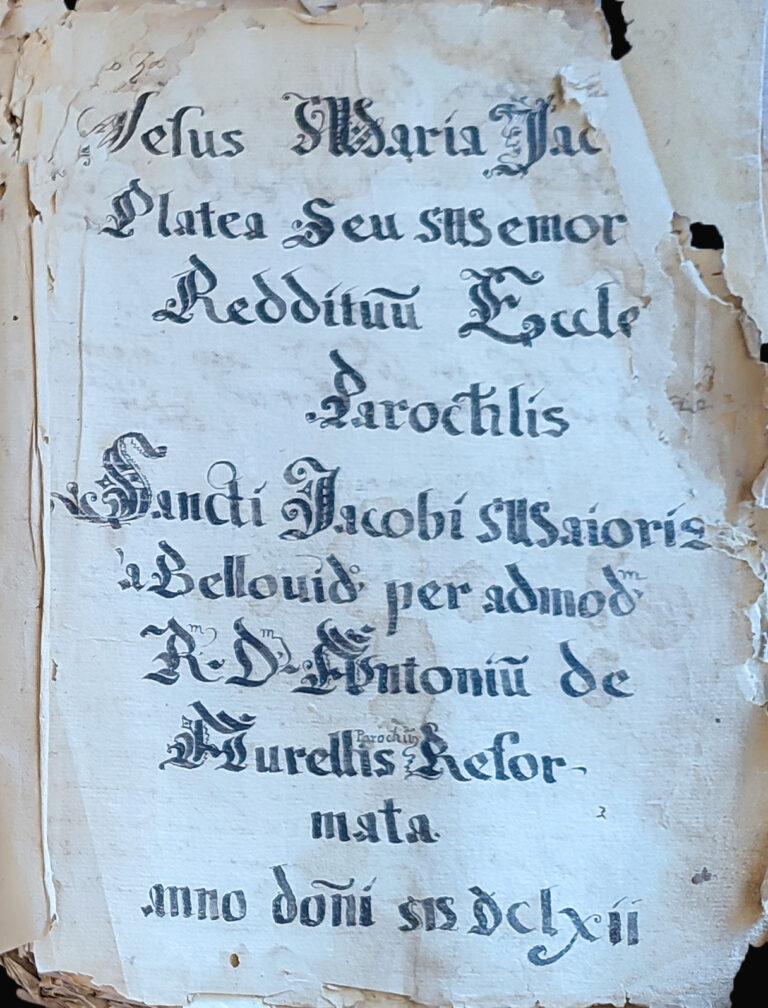 Jesus Maria Jac
Platea Seu Memor
Reddituū Eccle
Parochlis
Sancti Jacobi Maioris
a Bellouid: per admod.m
R.m D.m Antoniū de
Aurellis Parochū Refor-
mata.
anno doñi MDclxii